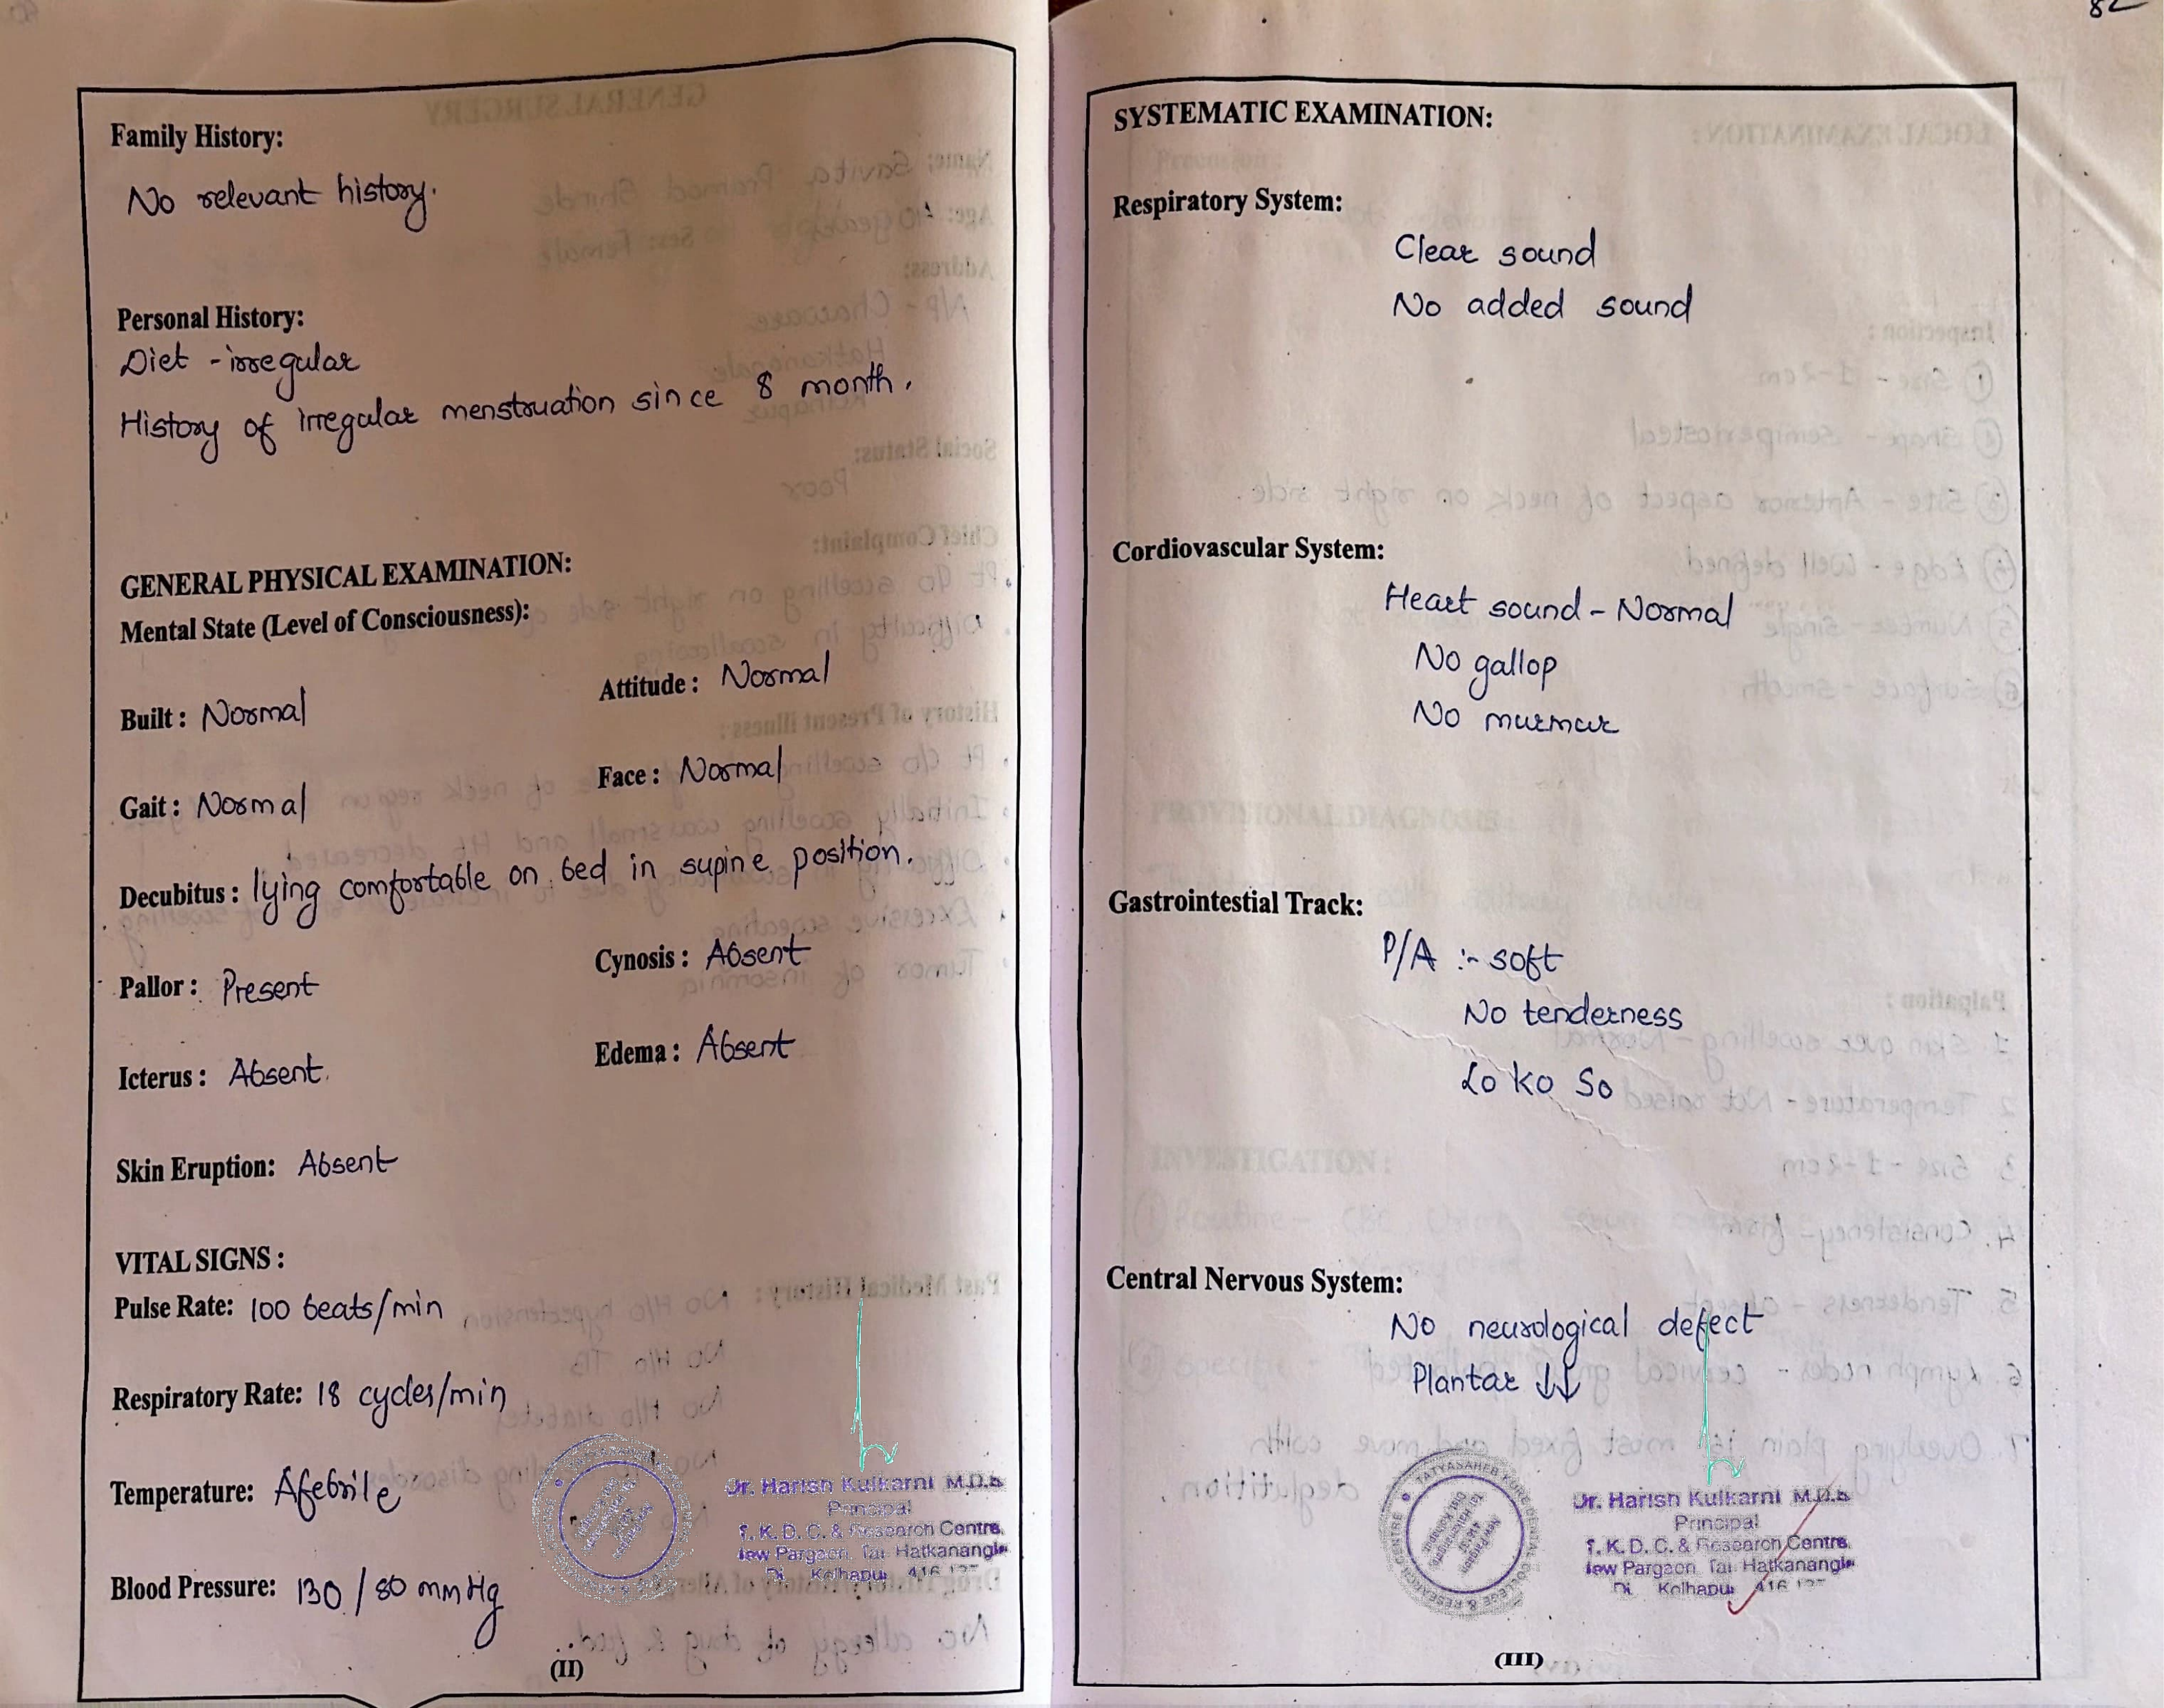 82
Family History:
No relevant history.
Personal History:
Diet - irregular
History of irregular menstruation since 8 month.
GENERAL PHYSICAL EXAMINATION:
Mental State (Level of Consciousness):
Built : Normal
Attitude : Normal
Gait : Normal
Face : Normal
Decubitus : lying comfortable on bed in supine position.
Pallor : Present
Cynosis : Absent
Icterus : Absent
Edema : Absent
Skin Eruption: Absent
VITAL SIGNS :
Pulse Rate: 100 beats/min
Respiratory Rate: 18 cycles/min
Temperature: Afebrile
Blood Pressure: 130 / 80 mmHg
Dr. Harish Kulkarni M.D.S
Principal
T. K. D. C. & Research Centre,
New Pargaon, Tal Hatkanangle
Di. Kolhapur 416
(II)
SYSTEMATIC EXAMINATION:
Respiratory System:
Clear sound
No added sound
Cordiovascular System:
Heart sound - Normal
No gallop
No murmur
Gastrointestial Track:
P/A :- soft
No tenderness
Lo Ko So
Central Nervous System:
No neurological defect
Plantar ↓↓
TATYASAHEB KORE DENTAL COLLEGE & RESEARCH CENTRE
Dr. Harish Kulkarni M.D.S
Principal
T. K. D. C. & Research Centre,
New Pargaon, Tal Hatkanangle
Di. Kolhapur 416
(III)